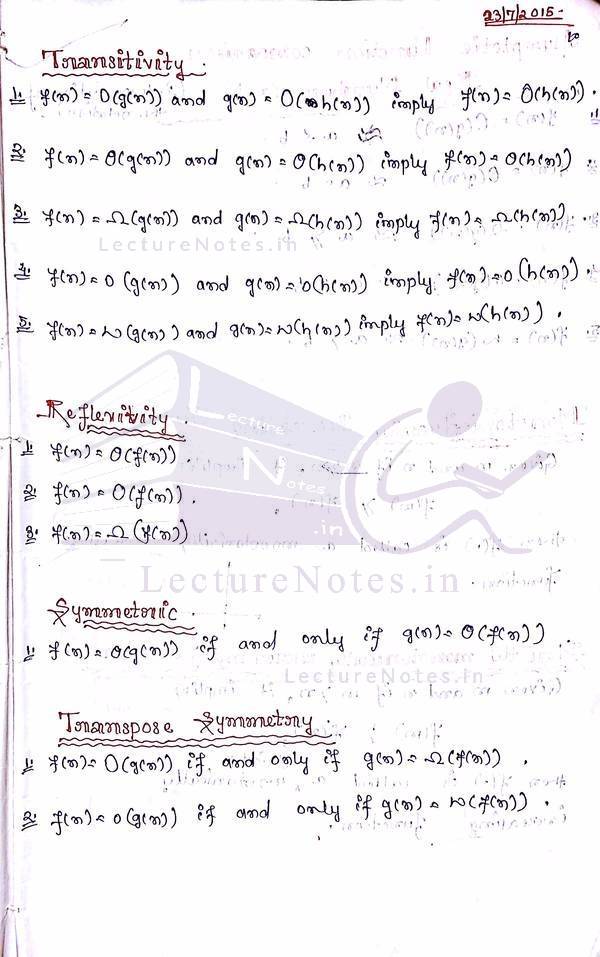 23/7/2015
Transitivity.
1. f(n) = O(g(n)) and g(n) = O(h(n)) imply f(n) = O(h(n)).
2. f(n) = Θ(g(n)) and g(n) = Θ(h(n)) imply f(n) = Θ(h(n)).
3. f(n) = Ω(g(n)) and g(n) = Ω(h(n)) imply f(n) = Ω(h(n)).
LectureNotes.in
4. f(n) = o(g(n)) and g(n) = o(h(n)) imply f(n) = o(h(n)).
5. f(n) = ω(g(n)) and g(n) = ω(h(n)) imply f(n) = ω(h(n)).
Reflexitivity.
Lecture
1. f(n) = Θ(f(n)).
Notes
2. f(n) = O(f(n)).
.in
3. f(n) = Ω(f(n)).
LectureNotes.in
Symmetric.
1. f(n) = Θ(g(n)) if and only if g(n) = Θ(f(n)).
LectureNotes.in
Transpose Symmetry.
1. f(n) = O(g(n)) if and only if g(n) = Ω(f(n)).
2. f(n) = o(g(n)) if and only if g(n) = ω(f(n)).